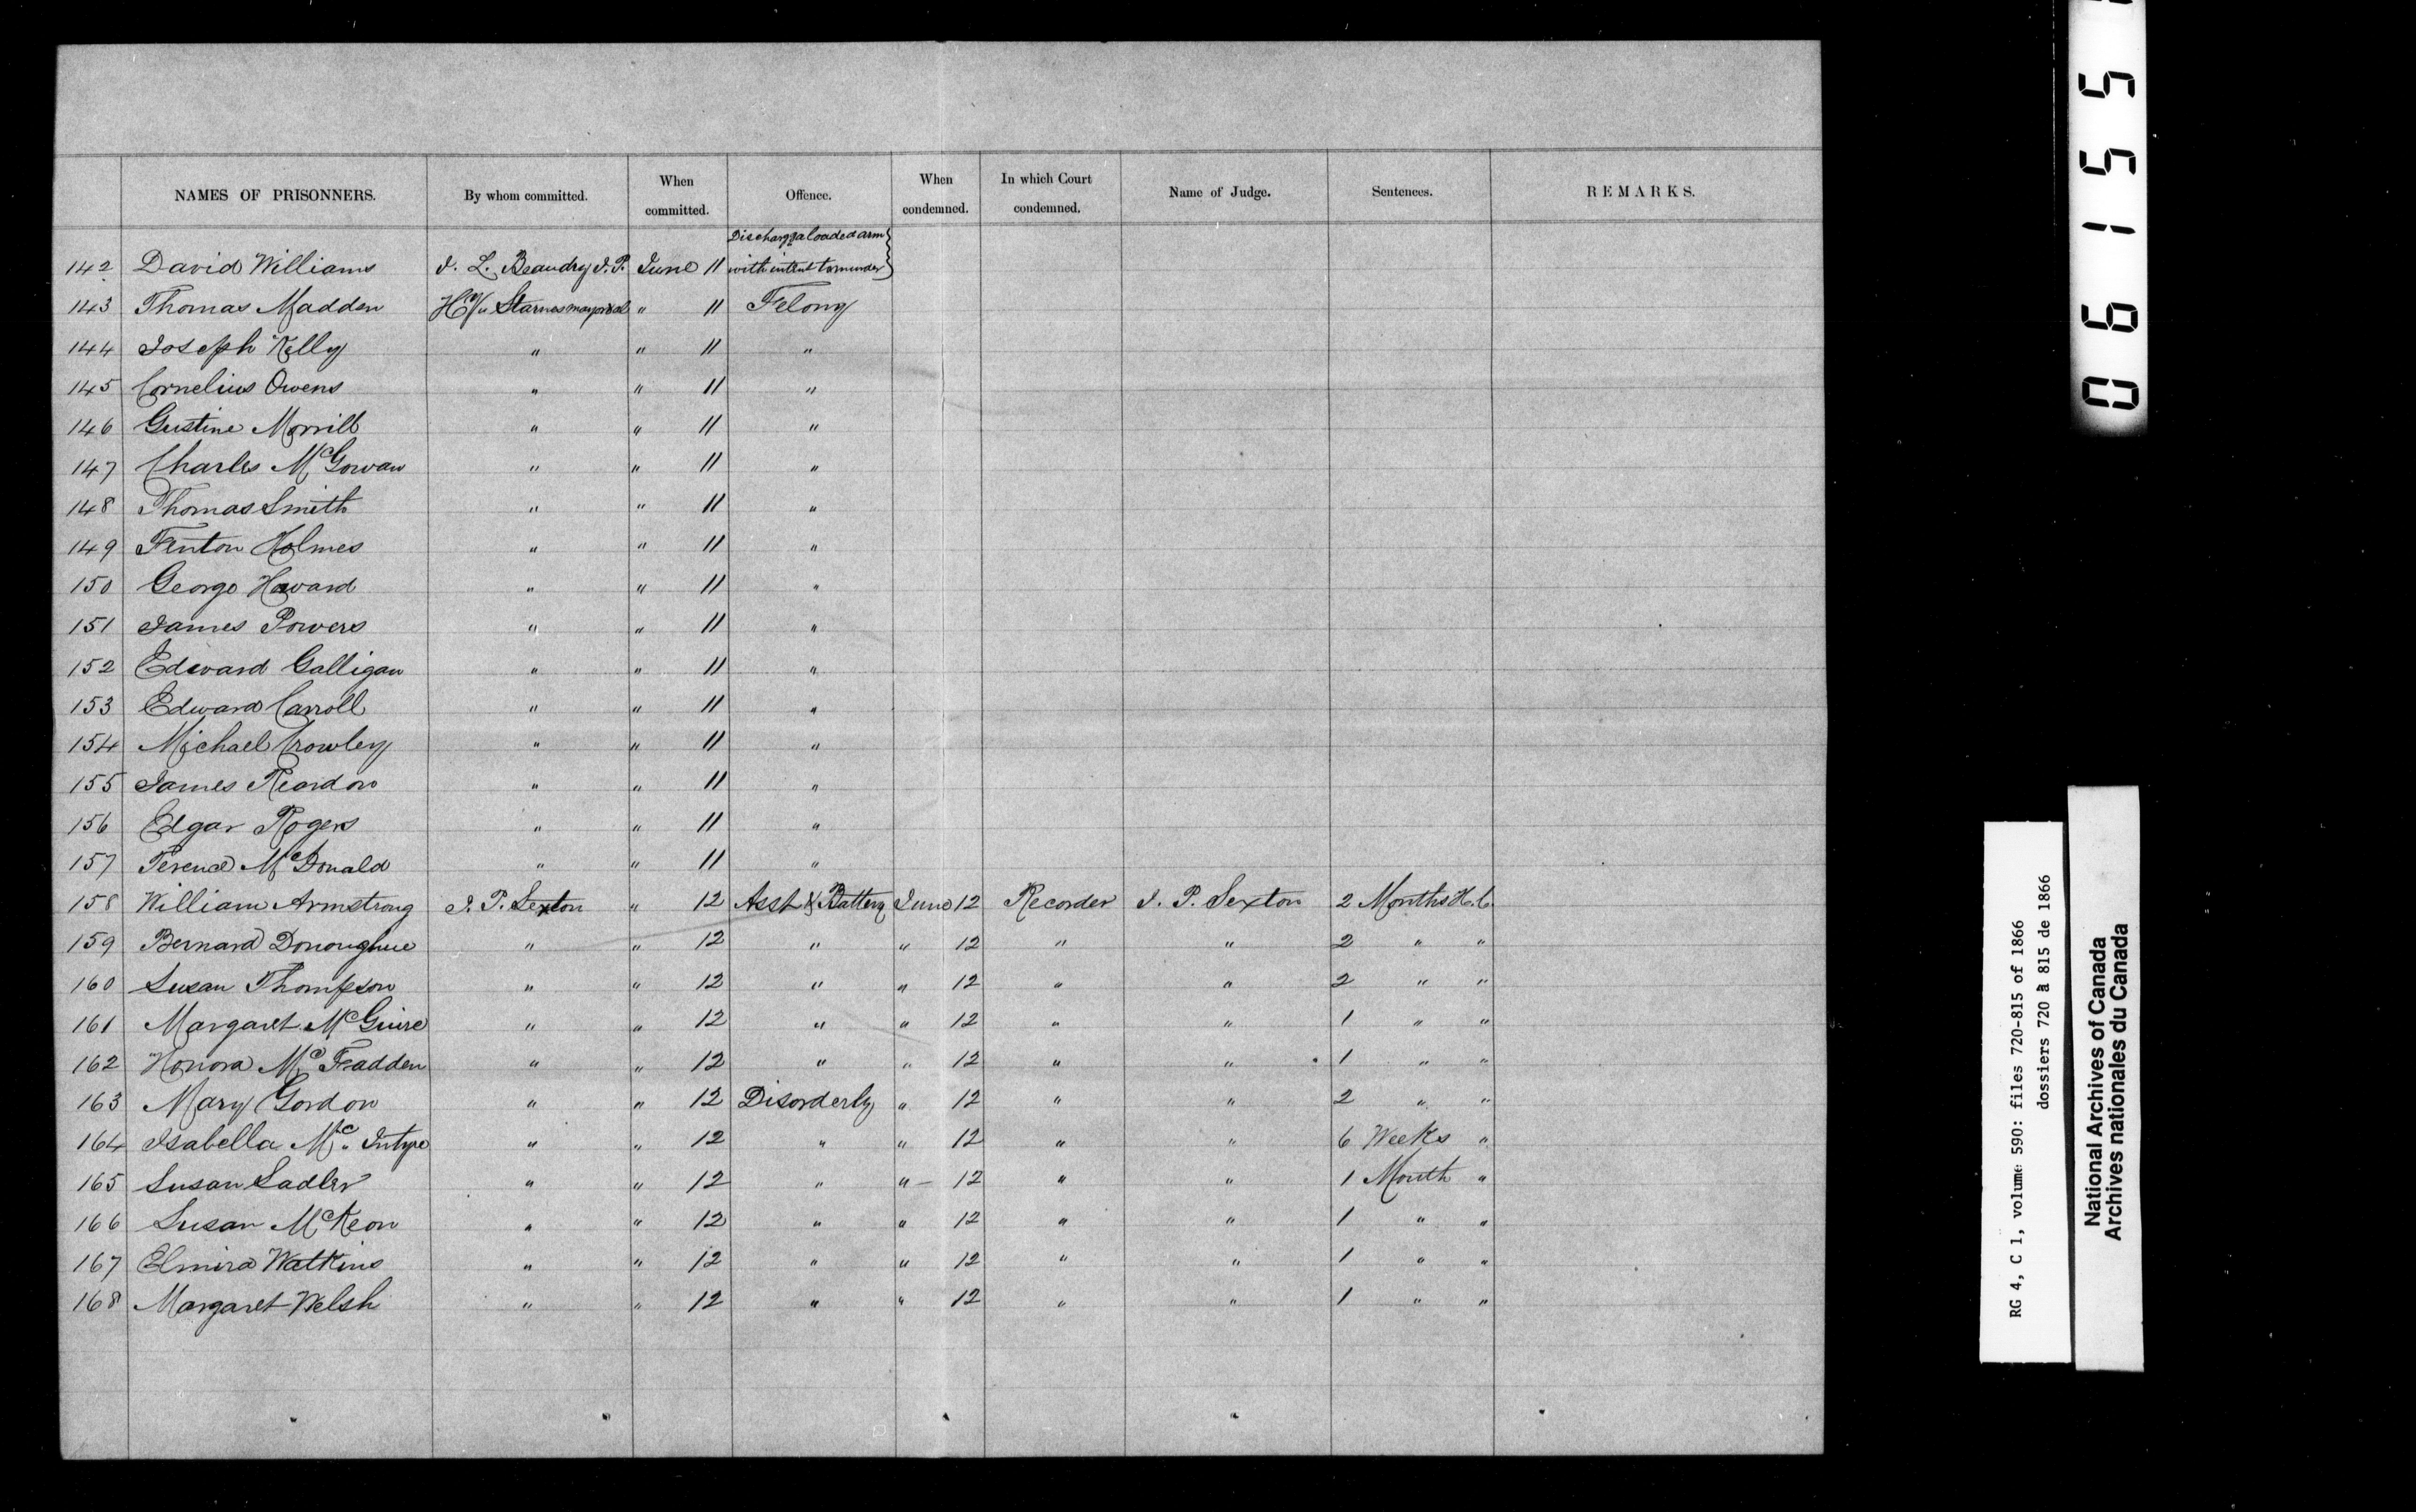 NAMES OF PRISONNERS. By whom committed. When committed. Offence. When condemned. In which Court condemned. Name of Judge. Sentences. REMARKS.
142 David Williams J. L. Beaudry J.P. June 11 Discharg'g a loaded arm with intent to murder
143 Thomas Madden Starnes mayor " 11 Felony
144 Joseph Kelly " " 11 "
145 Cornelius Owens " " 11 "
146 Gustine Morrill " " 11 "
147 Charles McGowan " " 11 "
148 Thomas Smith " " 11 "
149 Fenton Holmes " " 11 "
150 George Howard " " 11 "
151 James Powers " " 11 "
152 Edward Galligan " " 11 "
153 Edward Carroll " " 11 "
154 Michael Crowley " " 11 "
155 James Reardon " " 11 "
156 Edgar Rogers " " 11 "
157 Terence McDonald " " 11 "
158 William Armstrong J. P. Sexton " 12 Asst & Battery June 12 Recorder J. P. Sexton 2 Months H.C.
159 Bernard Donoughue " " 12 " " 12 " " 2 " "
160 Susan Thompson " " 12 " " 12 " " 2 " "
161 Margaret McGuire " " 12 " " 12 " " 1 " "
162 Honora McFadden " " 12 " " 12 " " 1 " "
163 Mary Gordon " " 12 Disorderly " 12 " " 2 " "
164 Isabella Mc Intyre " " 12 " " 12 " " 6 Weeks "
165 Susan Sadler " " 12 " " 12 " " 1 Month "
166 Susan McKeon " " 12 " " 12 " " 1 " "
167 Elmira Watkins " " 12 " " 12 " " 1 " "
168 Margaret Welsh " " 12 " " 12 " " 1 " "
06155
RG 4, C 1, volume 590: files 720-815 of 1866
dossiers 720 à 815 de 1866
National Archives of Canada
Archives nationales du Canada